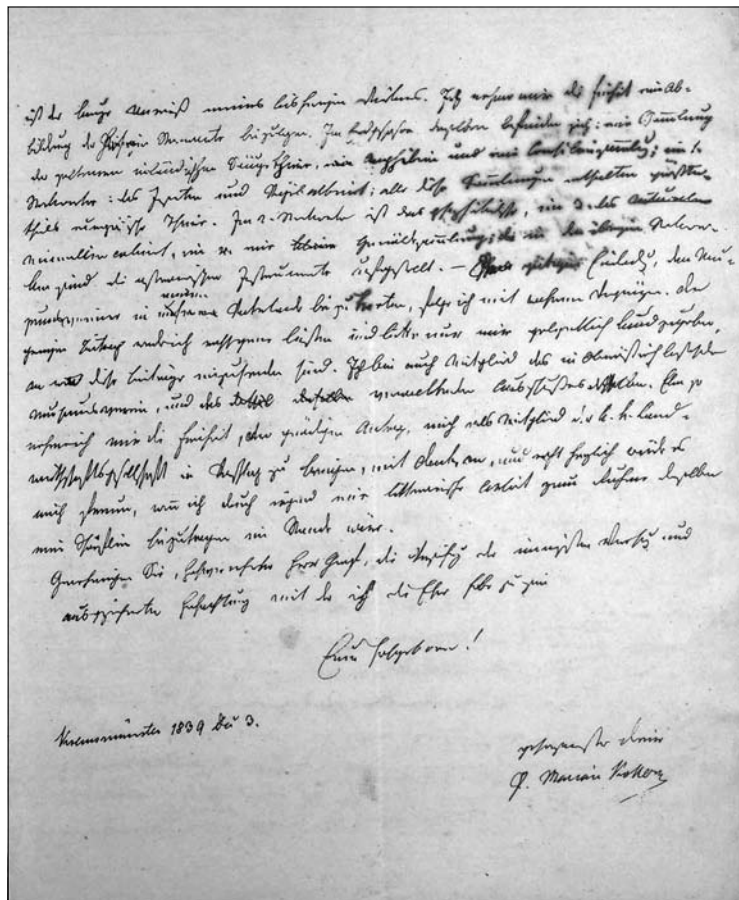 ist der kurze Umriß meines bisherigen Wirkens. Ich nehme mir die Freiheit eine Ab-
bildung der Sternwarte beizulegen. Im Erdgeschosse derselben befindet sich: eine Sammlung
der seltenen inländischen Säugethiere, eine Amphibien und eine Conchiliensammlung; im 1.
Stockwerke: das und Vögelcabinet; alle diese Sammlungen enthalten größten-
theils Thiere. Im 2. Stockwerke ist das physikalische, im 3. das
Mineralien cabinet, im 4. eine kleine Gemäldesammlung; in den übrigen Stockwer-
ken sind die astronomischen Instrumente aufgestellt. — gütigen Einladung, dem Mu-
seumsvereine in Vaterlande beizutreten, folge ich mit wahrem Vergnügen. Den
Beitrag werde ich lassen und bitte nur mir gefälligst kund zu geben,
an wen diese Beiträge einzusenden sind. Ich bin auch Mitglied des in Oberöstreich
Museumsverein, und des verwaltenden Ausschußes desselben. Eben so
nehme ich mir die Freiheit, den gnädigen Antrag, mich als Mitglied der k. k. Land-
wirthschaftsgesellschaft in Vorschlag zu bringen, mit Dank an, und recht herzlich würde es
mich freuen, wenn ich durch irgend eine litterarische Arbeit zum derselben
mein Schärflein beizutragen im Stande wäre.
Genehmigen Sie, hochverehrter Herr Graf, die der innigsten und
ausgezeichneten Hochachtung mit der ich die Ehre habe zu sein
Euer Hochgeboren!
Kremsmünster 1839 Dec 3.
gehorsamster Diener
P. Marian Koller